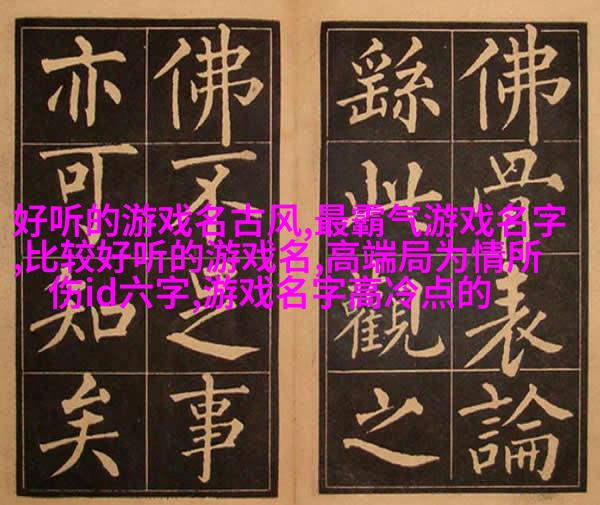 好听的游戏名古风,最霸气游戏名字
,比较好听的游戏名,高端局为情所
伤id六字,游戏名字高冷点的
佛骨表論
繇此觀之
佛不足事
亦可知矣